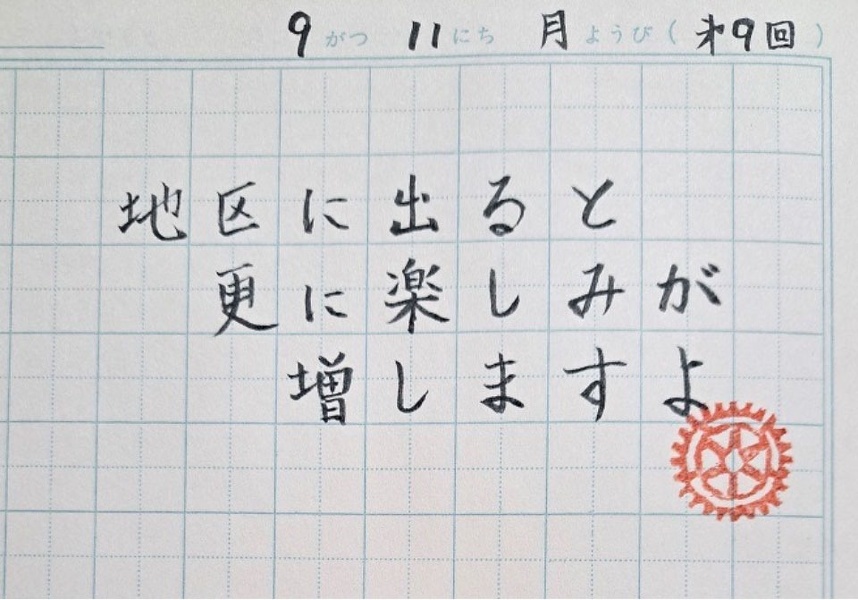 9がつ 11にち 月ようび(才9回)
地区に出ると
更に楽しみが
増しますよ